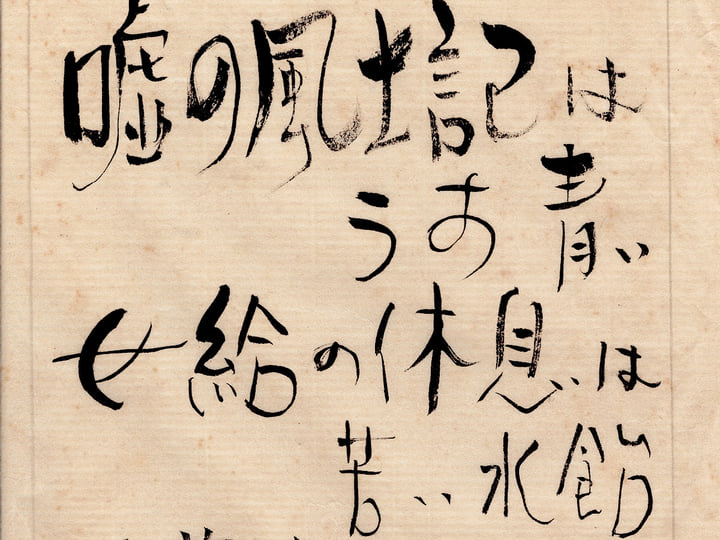 嘘の風土記は
うす青い
女給の休息は
苦い水飴